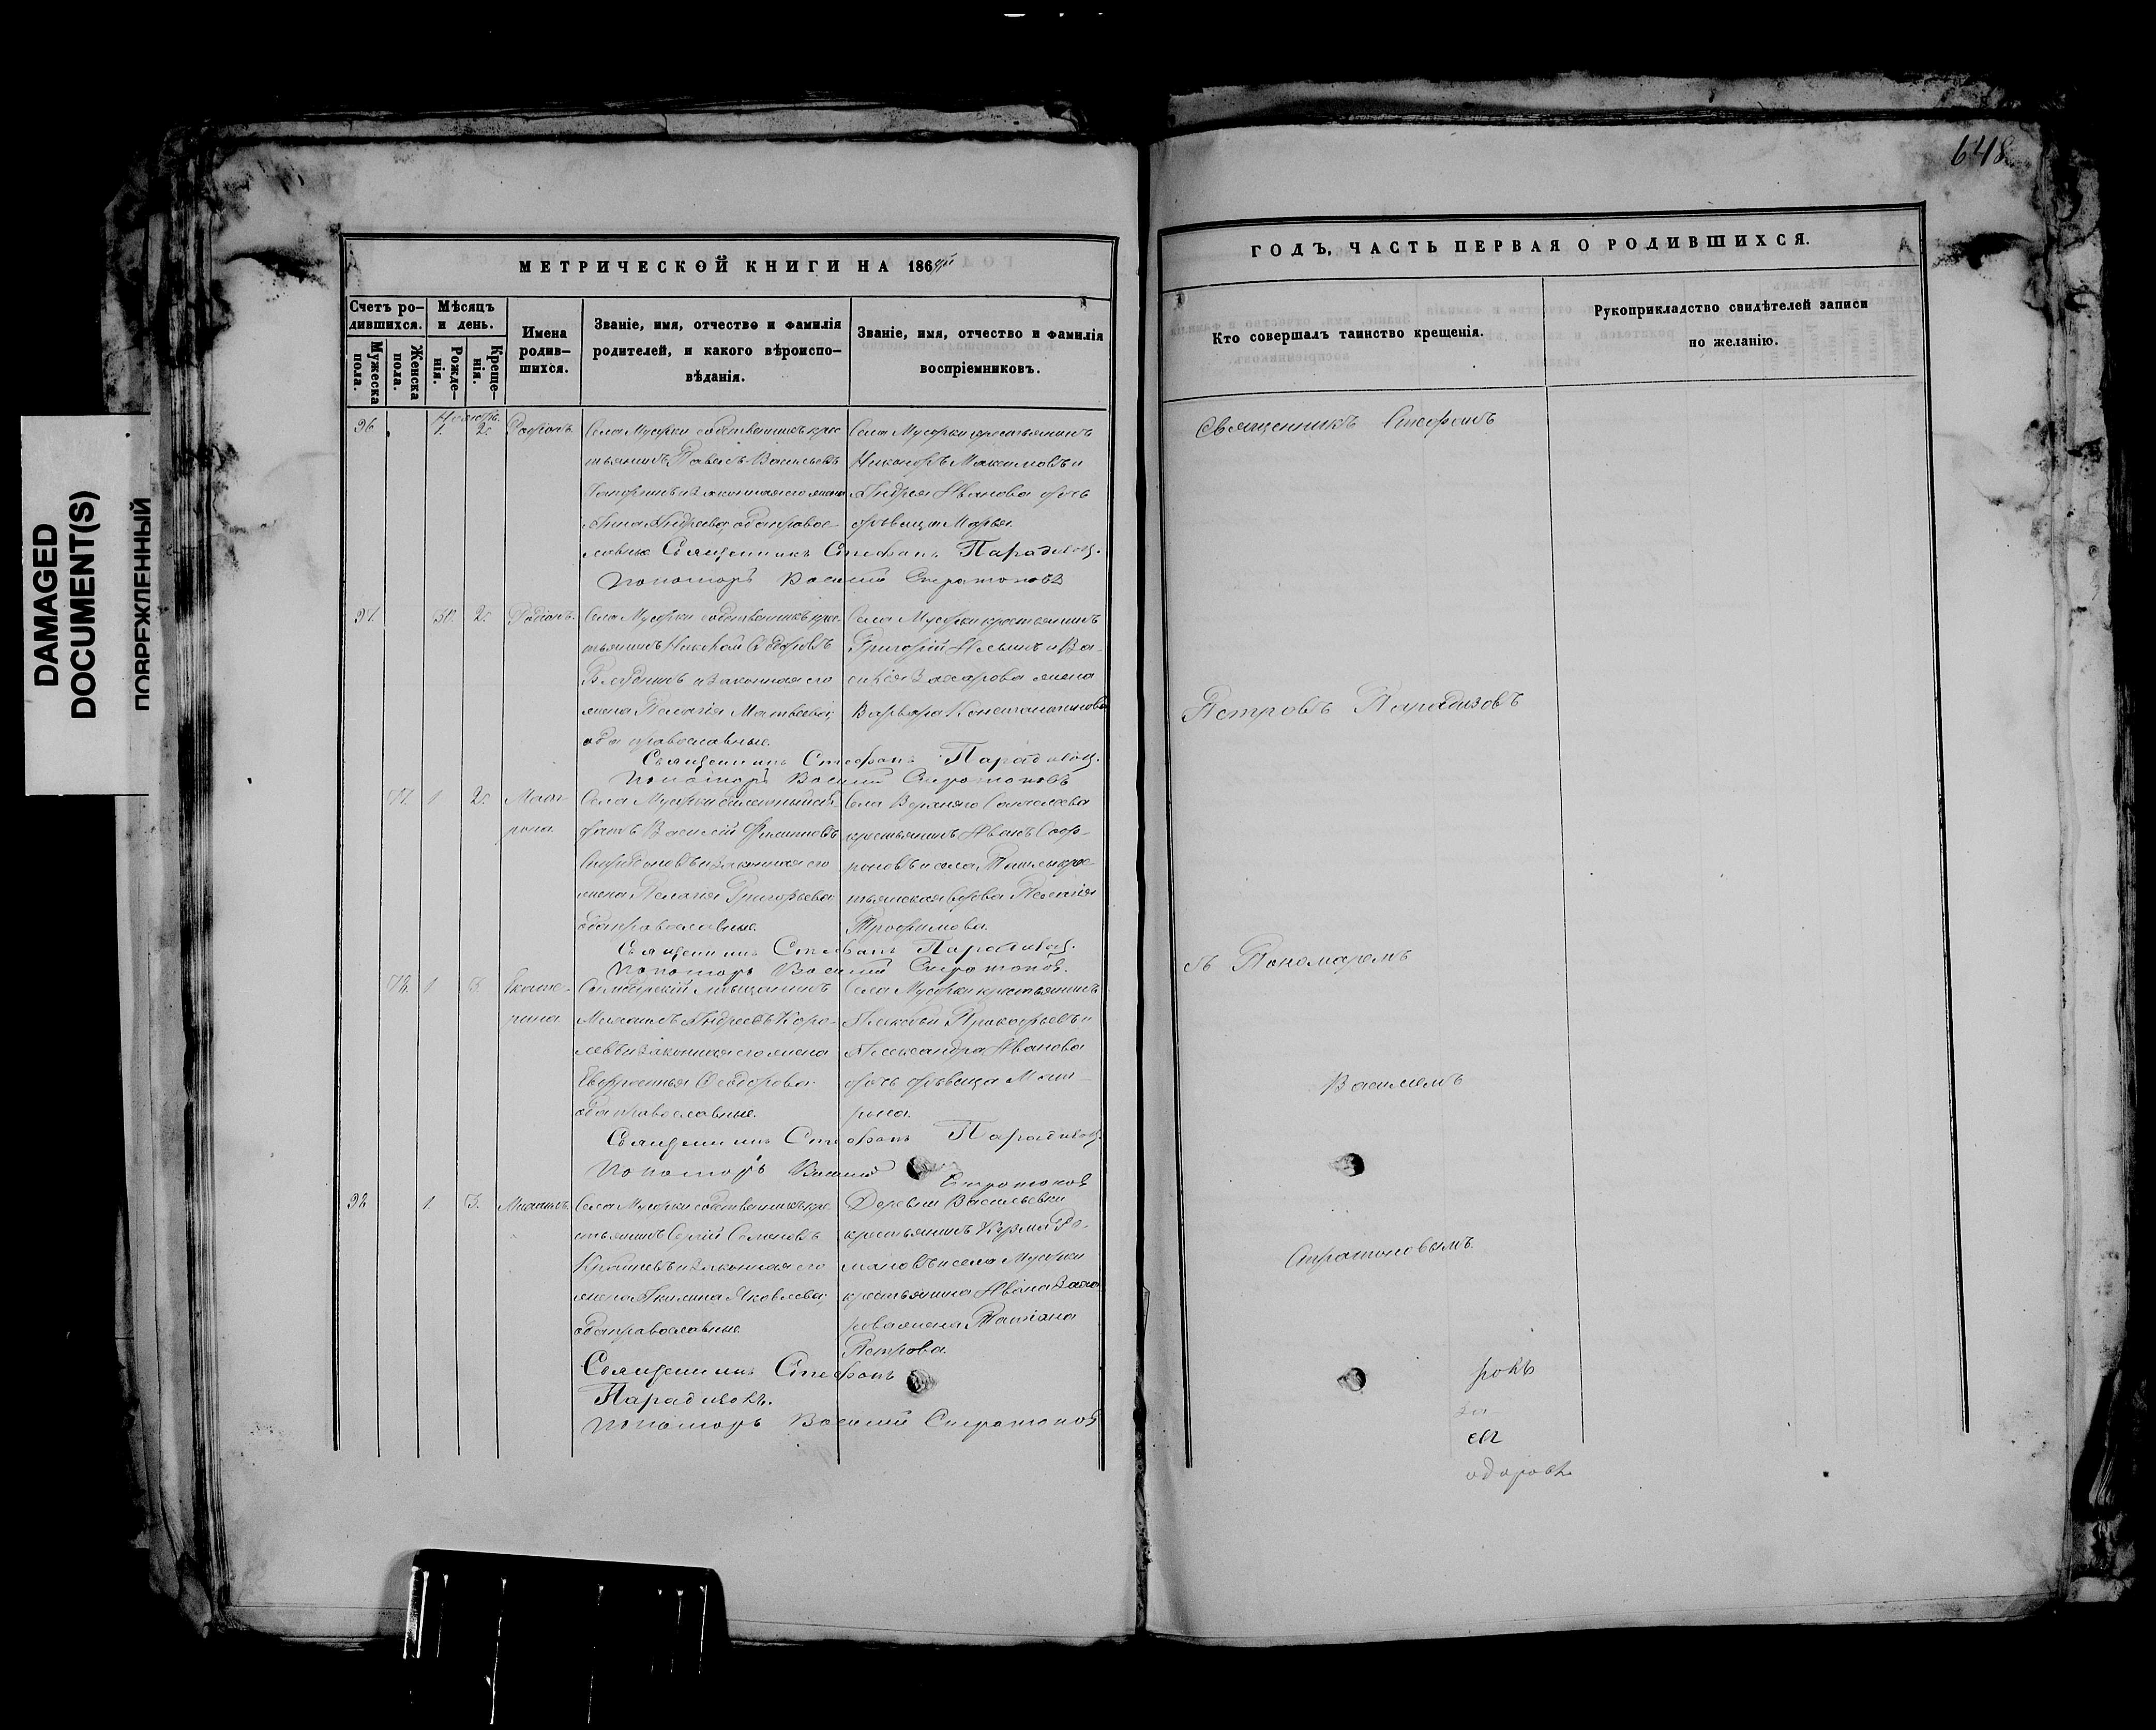 648
DAMAGED
DOCUMENT(S)
ПОВРЕЖДЕННЫЙ
МЕТРИЧЕСКОЙ КНИГИ НА 186
Счетъ ро-
дившихся.
Мѣсяцъ
и день.
Мужеска
пола.
Женска
пола.
Рожде-
нія.
Креще-
нія.
Имена
родив-
шихся.
Званіе, имя, отчество и фамилія
родителей, и какого вѣроиспо-
вѣданія.
Званіе, имя, отчество и фамилія
воспріемниковъ.
96 1. 2. Родіонъ.
Села Мусорки собственникъ крес
тьянинъ Павелъ Васильевъ
и законная его жена
Анна Андреева, оба правос-
лавные Священникъ Стефанъ Парадизов.
Пономарь Василій Стратоновъ
Села Мусорки крестьянинъ
Никаноръ Максимовъ и
Андрея Иванова дочь
дѣвица Марья.
97. 30. 2. Родіонъ.
Села Мусорки собственникъ крес
тьянинъ Николай Ѳедоровъ
и законная его
жена Пелагія Матвѣева,
оба православные.
Священникъ Стефанъ Парадизов.
Пономарь Василій Стратоновъ
Села Мусорки крестьянинъ
Григорій Ильинъ и Ва-
силія Захарова жена
Варвара Константинова
1. 2. Мат-
рона.
Села Мусорки
Василій Филиповъ
Спиридоновъ и законная его
жена Пелагія Григорьева
оба православные.
Священникъ Стефанъ Парадизов.
Пономарь Василій Стратонов.
Села Верхняго Санчелеева
крестьянинъ Иванъ Соф-
роновъ и села Ташлы крес-
тьянская вдова Пелагія
Трофимова.
1. 3. Екате-
рина
Симбирскій мѣщанинъ
Михаилъ Андреевъ Коро-
левъ и законная его жена
Евфросинья Ѳеодорова
оба православные.
Священникъ Стефанъ Парадизов.
Пономарь Василій
Стратонов
Села Мусорки крестьянинъ
Алексѣй Прокофьевъ и
Александра Иванова
дочь дѣвица Мат-
рена.
98 1. 3. Михаилъ.
Села Мусорки собственникъ кре
стьянинъ Сергій Семеновъ
и законная его
жена Акилина Яковлева,
оба православные.
Священникъ Стефанъ
Парадизовъ.
Пономарь Василій Стратонов
Деревни Васильевки
крестьянинъ Козма Ро-
мановъ и села Мусорки
крестьянина Ивана Заха
рова жена Татіана
Петрова.
ГОДЪ, ЧАСТЬ ПЕРВАЯ О РОДИВШИХСЯ.
Кто совершалъ таинство крещенія.
Рукоприкладство свидѣтелей записи
по желанію.
Священникъ Стефанъ
Петровъ Парадизовъ
съ Пономаремъ
Василіемъ
Стратоновымъ.